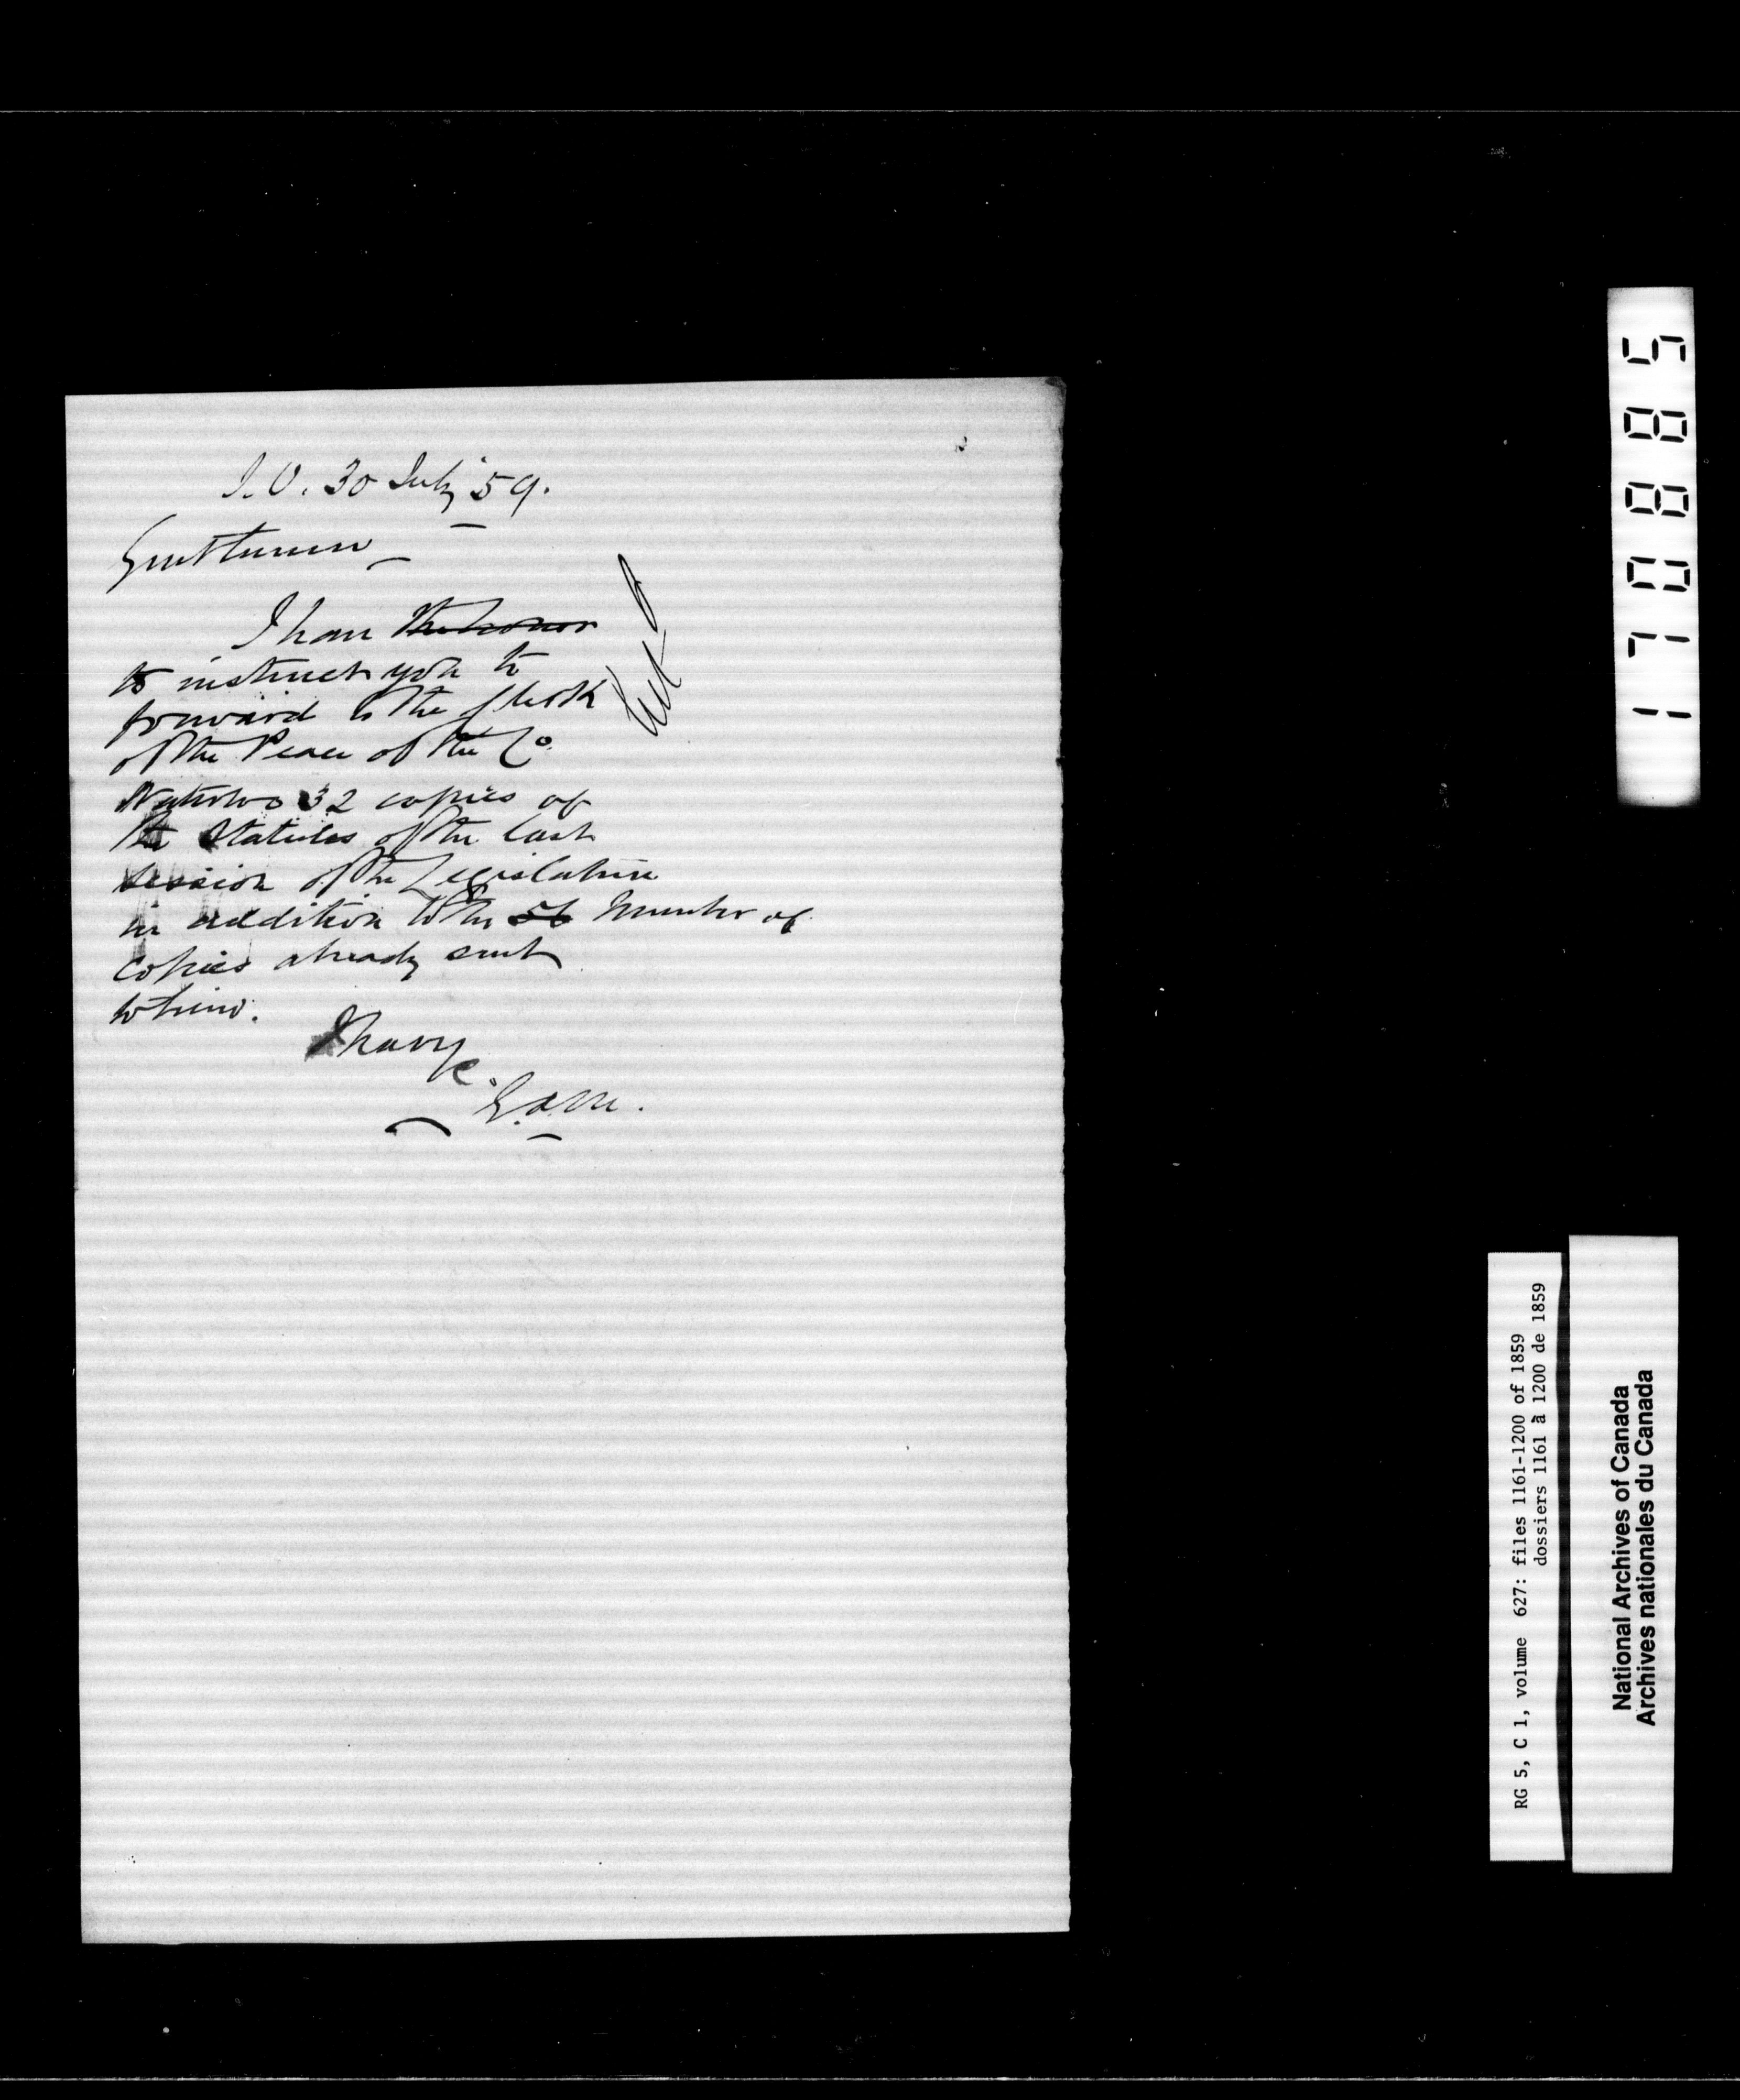 S.O. 30 July '59.
Gentlemen
I have the honor
to instruct you to
forward to the Clerk
of the Peace of the Co.
Waterloo 32 copies of
the Statutes of the last
session of the Legislature
in addition to the 56 Number of
copies already sent
to him.
I have
&c.
E.A.M.
170885
RG 5, C 1, volume 627: files 1161-1200 of 1859
dossiers 1161 à 1200 de 1859
National Archives of Canada
Archives nationales du Canada